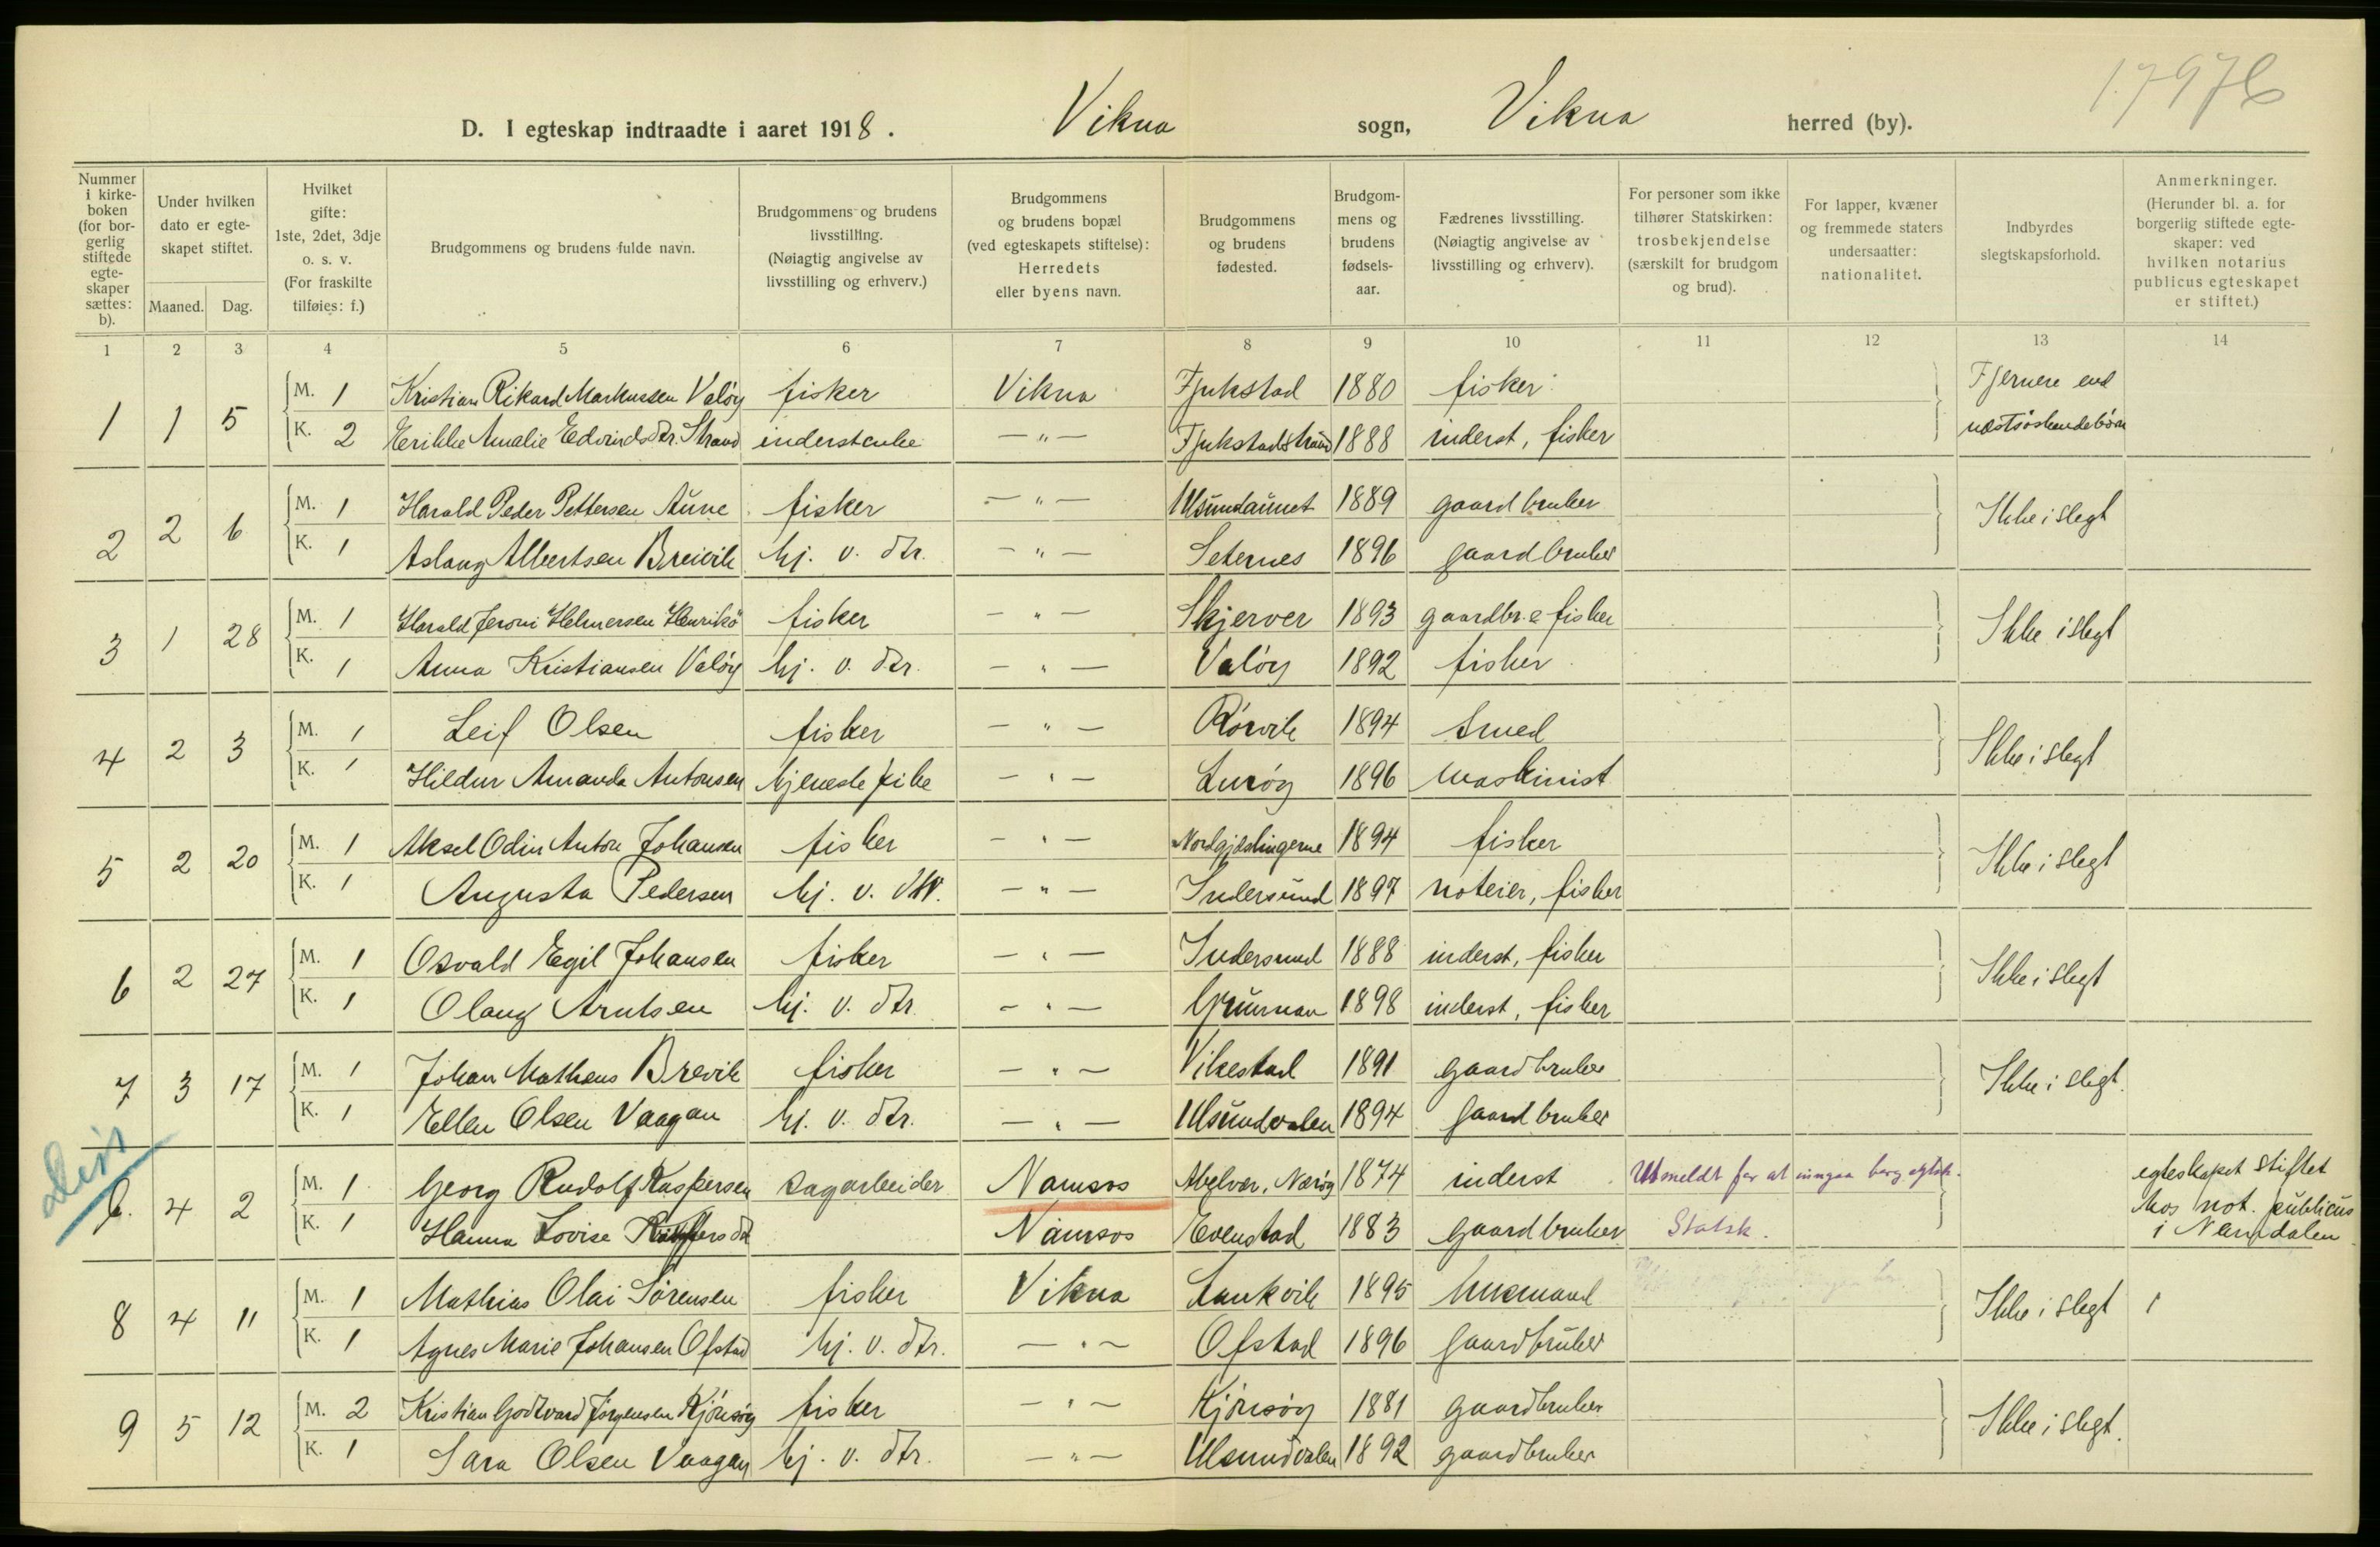 17976
D. I egteskap indtraadte i aaret 1918. Vikna sogn, Vikna herred (by).
Nummer i kirke-boken (for bor-gerlig stiftede egte-skaper sættes: b).
Under hvilken dato er egte-skapet stiftet.
Maaned. Dag.
Hvilket gifte: 1ste, 2det, 3dje o. s. v. (For fraskilte tilføies: f.)
Brudgommens og brudens fulde navn.
Brudgommens og brudens livsstilling. (Nøiagtig angivelse av livsstilling og erhverv.)
Brudgommens og brudens bopæl (ved egteskapets stiftelse): Herredets eller byens navn.
Brudgommens og brudens fødested.
Brudgom-mens og brudens fødsels-aar.
Fædrenes livsstilling. (Nøiagtig angivelse av livsstilling og erhverv).
For personer som ikke tilhører Statskirken: trosbekjendelse (særskilt for brudgom og brud).
For lapper, kvæner og fremmede staters undersaatter: nationalitet.
Indbyrdes slegtskapsforhold.
Anmerkninger. (Herunder bl. a. for borgerlig stiftede egte-skaper: ved hvilken notarius publicus egteskapet er stiftet.)
1 2 3 4 5 6 7 8 9 10 11 12 13 14
1 1 5 M. 1 Kristian Rikard Markussen Valøy fisker Vikna Fjukstad 1880 fisker Fjernere end
K. 2 Erikke Amalie Edvindsdtr. Strand inderstenke — " — Fjukstadstrand 1888 inderst, fisker næstsøskendebörn
2 2 6 M. 1 Harald Peder Pettersen Aune fisker — " — Ulsundaunet 1889 gaardbruker Ikke i slegt
K. 1 Aslaug Albertsen Breivik hj. v. dtr. — " — Seternes 1896 gaardbruker
3 1 28 M. 1 Harald Jeroni Helmersen Henrikö fisker — " — Skjerver 1893 gaardbr. & fisker Ikke i slegt
K. 1 Anna Kristiansen Valøy hj. v. dtr. — " — Valøy 1892 fisker
4 2 3 M. 1 Leif Olsen fisker — " — Rörvik 1894 smed Ikke i slegt
K. 1 Hildur Amanda Antonsen tjeneste pike — " — Lurøy 1896 maskinist
5 2 20 M. 1 Aksel Odin Anton Johansen fisker — " — Nordgjæslingerne 1894 fisker Ikke i slegt
K. 1 Augusta Pedersen hj. v. dtr. — " — Indersund 1897 noteier, fisker
6 2 27 M. 1 Osvald Egil Johansen fisker — " — Indersund 1888 inderst, fisker Ikke i slegt
K. 1 Olaug Arntsen hj. v. dtr. — " — 1898 inderst, fisker
7 3 17 M. 1 Johan Matheus Brevik fisker — " — Vikestad 1891 gaardbruker Ikke i slegt.
K. 1 Ellen Olsen Vaagan hj. v. dtr. — " — Ulsundvalen 1894 gaardbruker
b. 4 2 M. 1 Georg Rudolf Kaspersen sagarbeider Namsos Abelvær, Nærøy 1874 inderst Utmeldt for at inngaa borg. egtsk. egteskapet stiftet
K. 1 Hanna Lovise Namsos Evenstad 1883 gaardbruker Statsk. hos not. publicus
i Namdalen
8 4 11 M. 1 Mathias Olai Sörensen fisker Vikna 1895 Ikke i slegt 1
K. 1 Agnes Marie Johansen Ofstad hj. v. dtr. — " — Ofstad 1896 gaardbruker
9 5 12 M. 2 Kristian Godtvard Jörgensen Kjönsøy fisker — " — Kjönsøy 1881 gaardbruker Ikke i slegt.
K. 1 Sara Olsen Vaagan hj. v. dtr. — " — Ulsundvalen 1892 gaardbruker